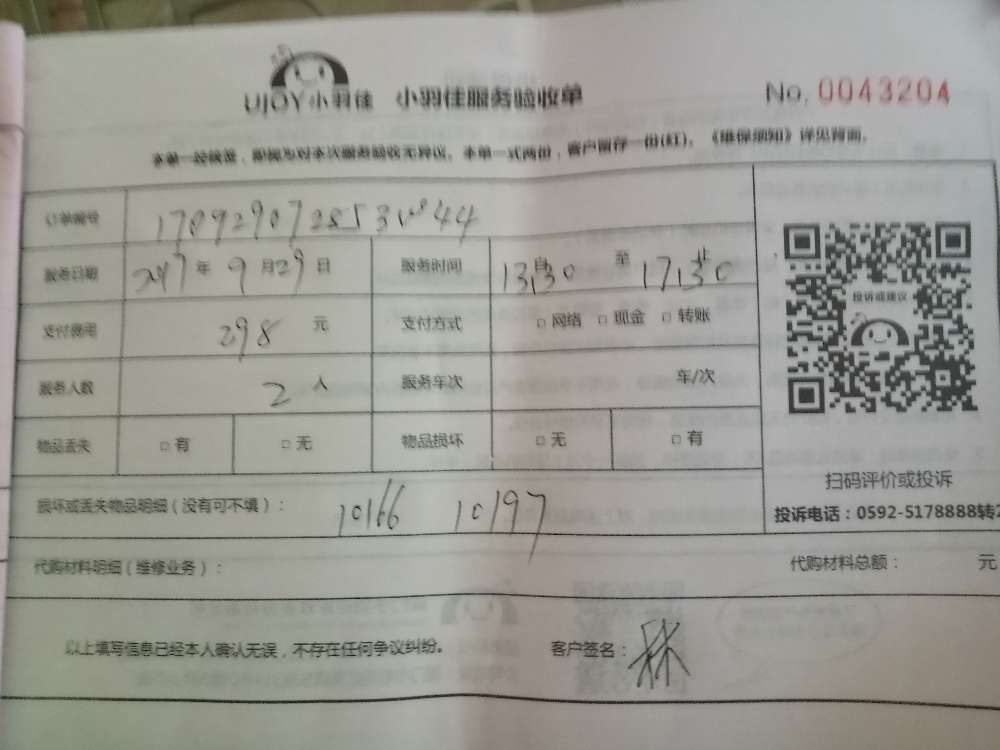 UJOY小羽佳 小羽佳服务验收单 No. 0043204
本单一经签签，即视为对本次服务验收无异议。本单一式两份，客户留存一份(红)。《维保细知》详见背面。
订单编号
服务日期 2017年9月29日 服务时间 自13:30至17:30止
支付费用 298元 支付方式 □网络 □现金 □转账
投诉或建议
服务人数 2人 服务车次 车/次
物品丢失 □有 □无 物品损坏 □无 □有
扫码评价或投诉
损坏或丢失物品明细（没有可不填）： 10166 10197
投诉电话：0592-5178888转2
代购材料明细（维修业务）： 代购材料总额： 元
以上填写信息已经本人确认无误，不存在任何争议纠纷。 客户签名：林